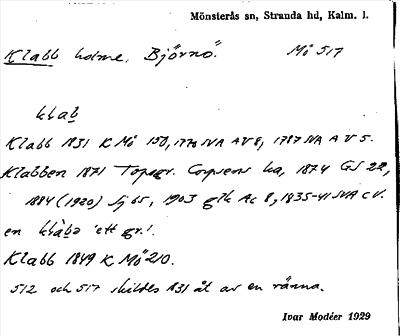 Mönsterås sn, Stranda hd, Kalm. l.
Klabb holme, Björnö. Mö 517
klab
Klabb 1831 K Mö 150, 1770 NA A V 8, 1787 NA A V 5.
Klabben 1871 Topogr. Corpsens ka, 1874 GS 22,
1884 (1920) Sj 65, 1903 glk Ac 8, 1835-41 SVA C V.
en klàbə 'ett gr.'.
Klabb 1849 K Mö 210.
512 och 517 skildes 1831 åt av en ränna.
Ivar Modéer 1929